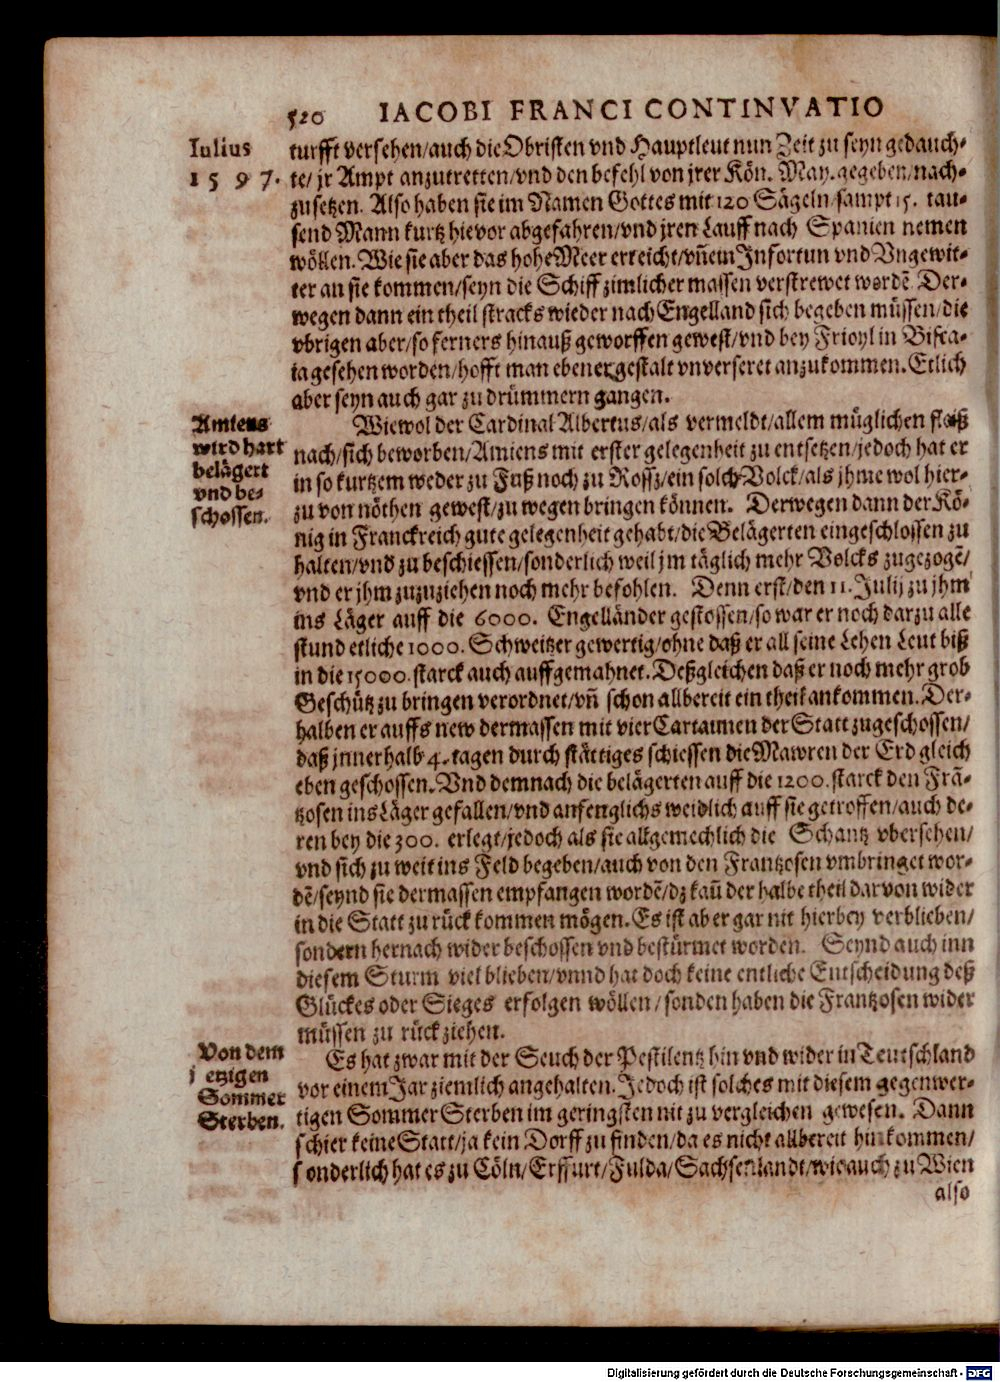 520 IACOBI FRANCI CONTINVATIO
Iulius
1597.
turfft versehen/auch die Obristen vnd Hauptleut nun Zeit zu seyn gedauch-
te/ jr Ampt anzutretten/vnd den befehl von jrer Kön. May. gegeben/nach-
zusetzen. Also haben sie im Namen Gottes mit 120 Sägeln/sampt 15. tau-
send Mann kurtz hievor abgefahren/vnd jren Lauff nach Spanien nemen
wöllen. Wie sie aber das hohe Meer erreicht/vñ ein Infortun vnd Vngewit-
ter an sie kommen/seyn die Schiff zimlicher massen verstrewet wordẽ Der-
wegen dann ein theil stracks wieder nach Engelland sich begeben müssen/die
vbrigen aber/so ferners hinauß geworffen gewest/vnd bey Frioyl in Bisca-
ia gesehen worden/hofft man ebener gestalt vnverseret anzukommen. Etlich
aber seyn auch gar zu drümmern gangen.
Amiens
wird hart
belägert
vnd be-
schossen.
Wiewol der Cardinal Albertus/als vermeldt/allem müglichen fleiß
nach/sich beworben/Amiens mit erster gelegenheit zu entsetzen/jedoch hat er
in so kurtzem weder zu Fuß noch zu Rossz/ein solch Volck/als jhme wol hier-
zu von nöthen gewest/zu wegen bringen können. Derwegen dann der Kö-
nig in Franckreich gute gelegenheit gehabt/die Belägerten eingeschlossen zu
halten/vnd zu beschiessen/sonderlich weil jm täglich mehr Volcks zugezogẽ/
vnd er jhm zuzuziehen noch mehr befohlen. Denn erst/den 11. Julij zu jhm
ins Läger auff die 6000. Engelländer gestossen/so war er noch darzu alle
stund etliche 1000. Schweitzer gewertig/ohne daß er all seine Lehen Leut biß
in die 15000. starck auch auffgemahnet. Deßgleichen daß er noch mehr grob
Geschütz zu bringen verordnet/vñ schon allbereit ein theil ankommen. Der-
halben er auffs new dermassen mit vier Cartaunen der Statt zugeschossen/
daß jnnerhalb 4. tagen durch stättiges schiessen die Mawren der Erd gleich
eben geschossen. Vnd demnach die belägerten auff die 1200. starck den Frã-
tzosen ins Läger gefallen/vnd anfenglichs weidlich auff sie getroffen/auch de-
ren bey die 300. erlegt/jedoch als sie allgemechlich die Schantz vbersehen/
vnd sich zu weit ins Feld begeben/auch von den Frantzosen vmbringet wor-
dẽ/seynd sie dermassen empfangen wordẽ/dz kaũ der halbe theil darvon wider
in die Statt zu rück kommen mögen. Es ist aber gar nit hierbey verblieben/
sondern hernach wider beschossen vnd bestürmet worden. Seynd auch inn
diesem Sturm viel blieben/vnnd hat doch keine entliche Entscheidung deß
Glückes oder Sieges erfolgen wöllen/sonden haben die Frantzosen wider
müssen zu rück ziehen.
Von dem
jetzigen
Sommer
Sterben.
Es hat zwar mit der Seuch der Pestilentz hin vnd wider in Teutschland
vor einem Jar ziemlich angehalten. Jedoch ist solches mit diesem gegenwer-
tigen Sommer Sterben im geringsten nit zu vergleichen gewesen. Dann
schier keine Statt/ja kein Dorff zu finden/da es nicht allbereit hinkommen/
sonderlich hat es zu Cöln/Erffurt/Fulda/Sachsenlandt/wie auch zu Wien
also
Digitalisierung gefördert durch die Deutsche Forschungsgemeinschaft - DFG